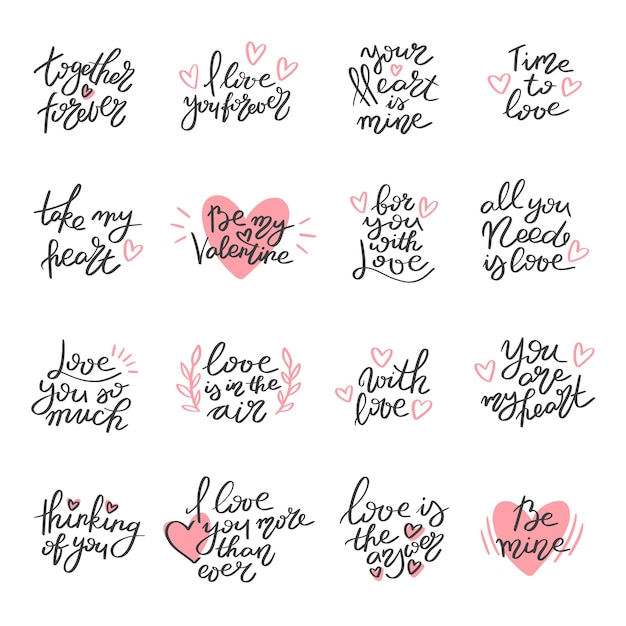 together
forever
I love
you forever
your
Heart
is
mine
Time
to
love
take my
heart
Be my
Valentine
for
you
with
Love
all you
Need
is love
Love
you so
much
love
is in the
air
with
love
You
are
my heart
thinking
of you
I love
you more
than
ever
love is
the
answer
Be
mine